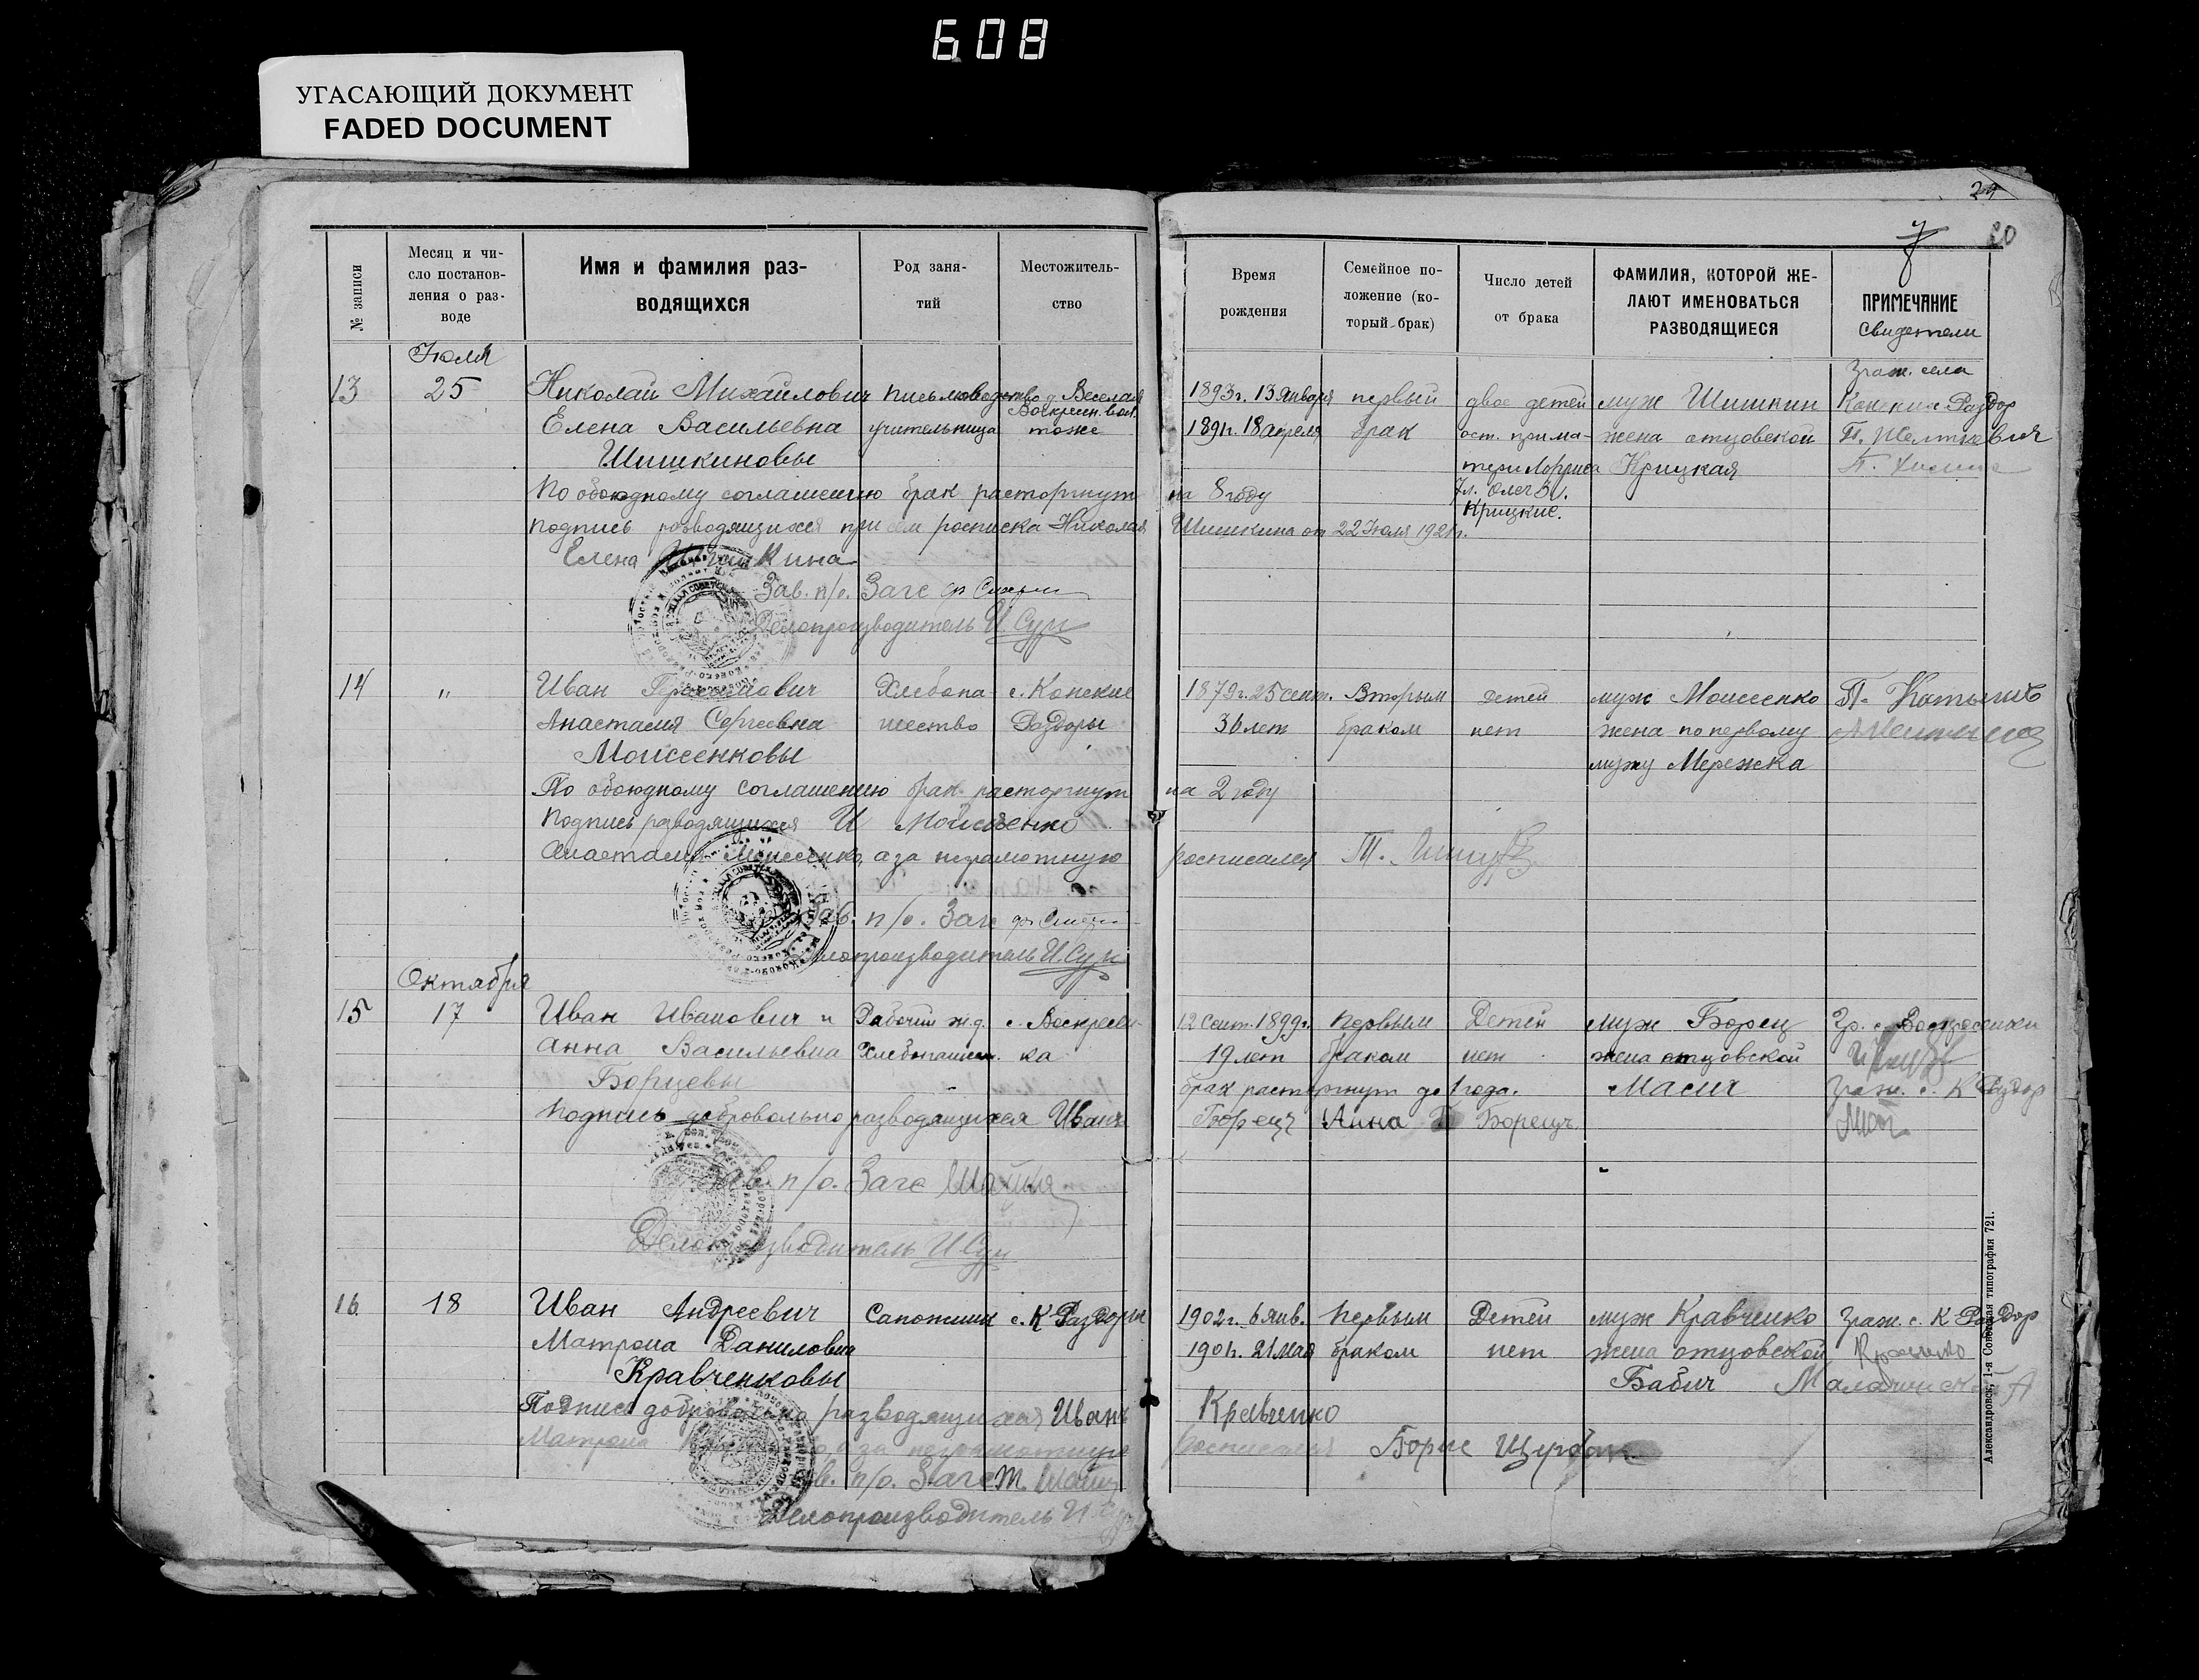 608
УГАСАЮЩИЙ ДОКУМЕНТ
FADED DOCUMENT
24
7
20
№ записи
Месяц и чи-
сло постанов-
ления о раз-
воде
Имя и фамилия раз-
водящихся
Род заня-
тий
Местожитель-
ство
Время
рождения
Семейное по-
ложение (ко-
торый брак)
Число детей
от брака
ФАМИЛИЯ, КОТОРОЙ ЖЕ-
ЛАЮТ ИМЕНОВАТЬСЯ
РАЗВОДЯЩИЕСЯ
ПРИМЕЧАНИЕ
Свидетели
Июля
Граж. села
13 25 Николай Михайлович письмоводство д. Веселая 1893г. 13 Января первый двое детей муж Шишкин Конских Раздор
Воскресен. вол.
Елена Васильевна учительница тоже 1891г. 18 апреля брак ост. при ма- жена отцовской П.
Шишкиновы тери Крицкая
По обоюдному соглашению брак расторгнут на 8 году
Крицкие.
подпись разводящихся при сем росписка Николая Шишкина от 22 Июля 1921г.
Елена Шишкина
Зав. п/о. Загс
Делопроизводитель И. Сук
14 " Иван Герасимович Хлебопа- с. Конские 1879г. 25 сент. Вторым детей муж Моисеенко П.
Анастасия Сергеевна шество Раздоры 36 лет браком нет жена по первому
Моисеенковы мужу Мережка
По обоюдному соглашению брак расторгнут на 2 году
Подпись разводящихся И Моисеенко
Анастасия Моисеенко, а за неграмотную росписался Т.
Зав. п/о. Загс
Делопроизводитель И. Сук
Октября
15 17 Иван Иванович и Рабочий ж.д. с. Воскресен- 12 Сент. 1899г. первым Детей муж Борец Гр. с. Воскресенки
Анна Васильевна Хлебопашест. ка 19 лет браком нет жена отцовской
Борцевы брак расторгнут до 1 года. Масич Граж. с. К Раздор
Подпись добровольно разводящихся Иван Борець Анна Борець
Зав. п/о. Загс
Делопроизводитель И Сук
16 18 Иван Андреевич Сапожник с. К Раздоры 1902г. 6 янв. первым Детей муж Кравченко Граж. с. К Раздор
Матрона Даниловна 1901г. 21 мая браком нет жена отцовской
Кравченковы Бабич
Подпись добровольно разводящихся Иван Кравченко
Матрона а за неграмотную росписался Борис Щербак
Зав. п/о. Загс
Делопроизводитель И. Сук
Александровск, 1-я Советская типография 721.